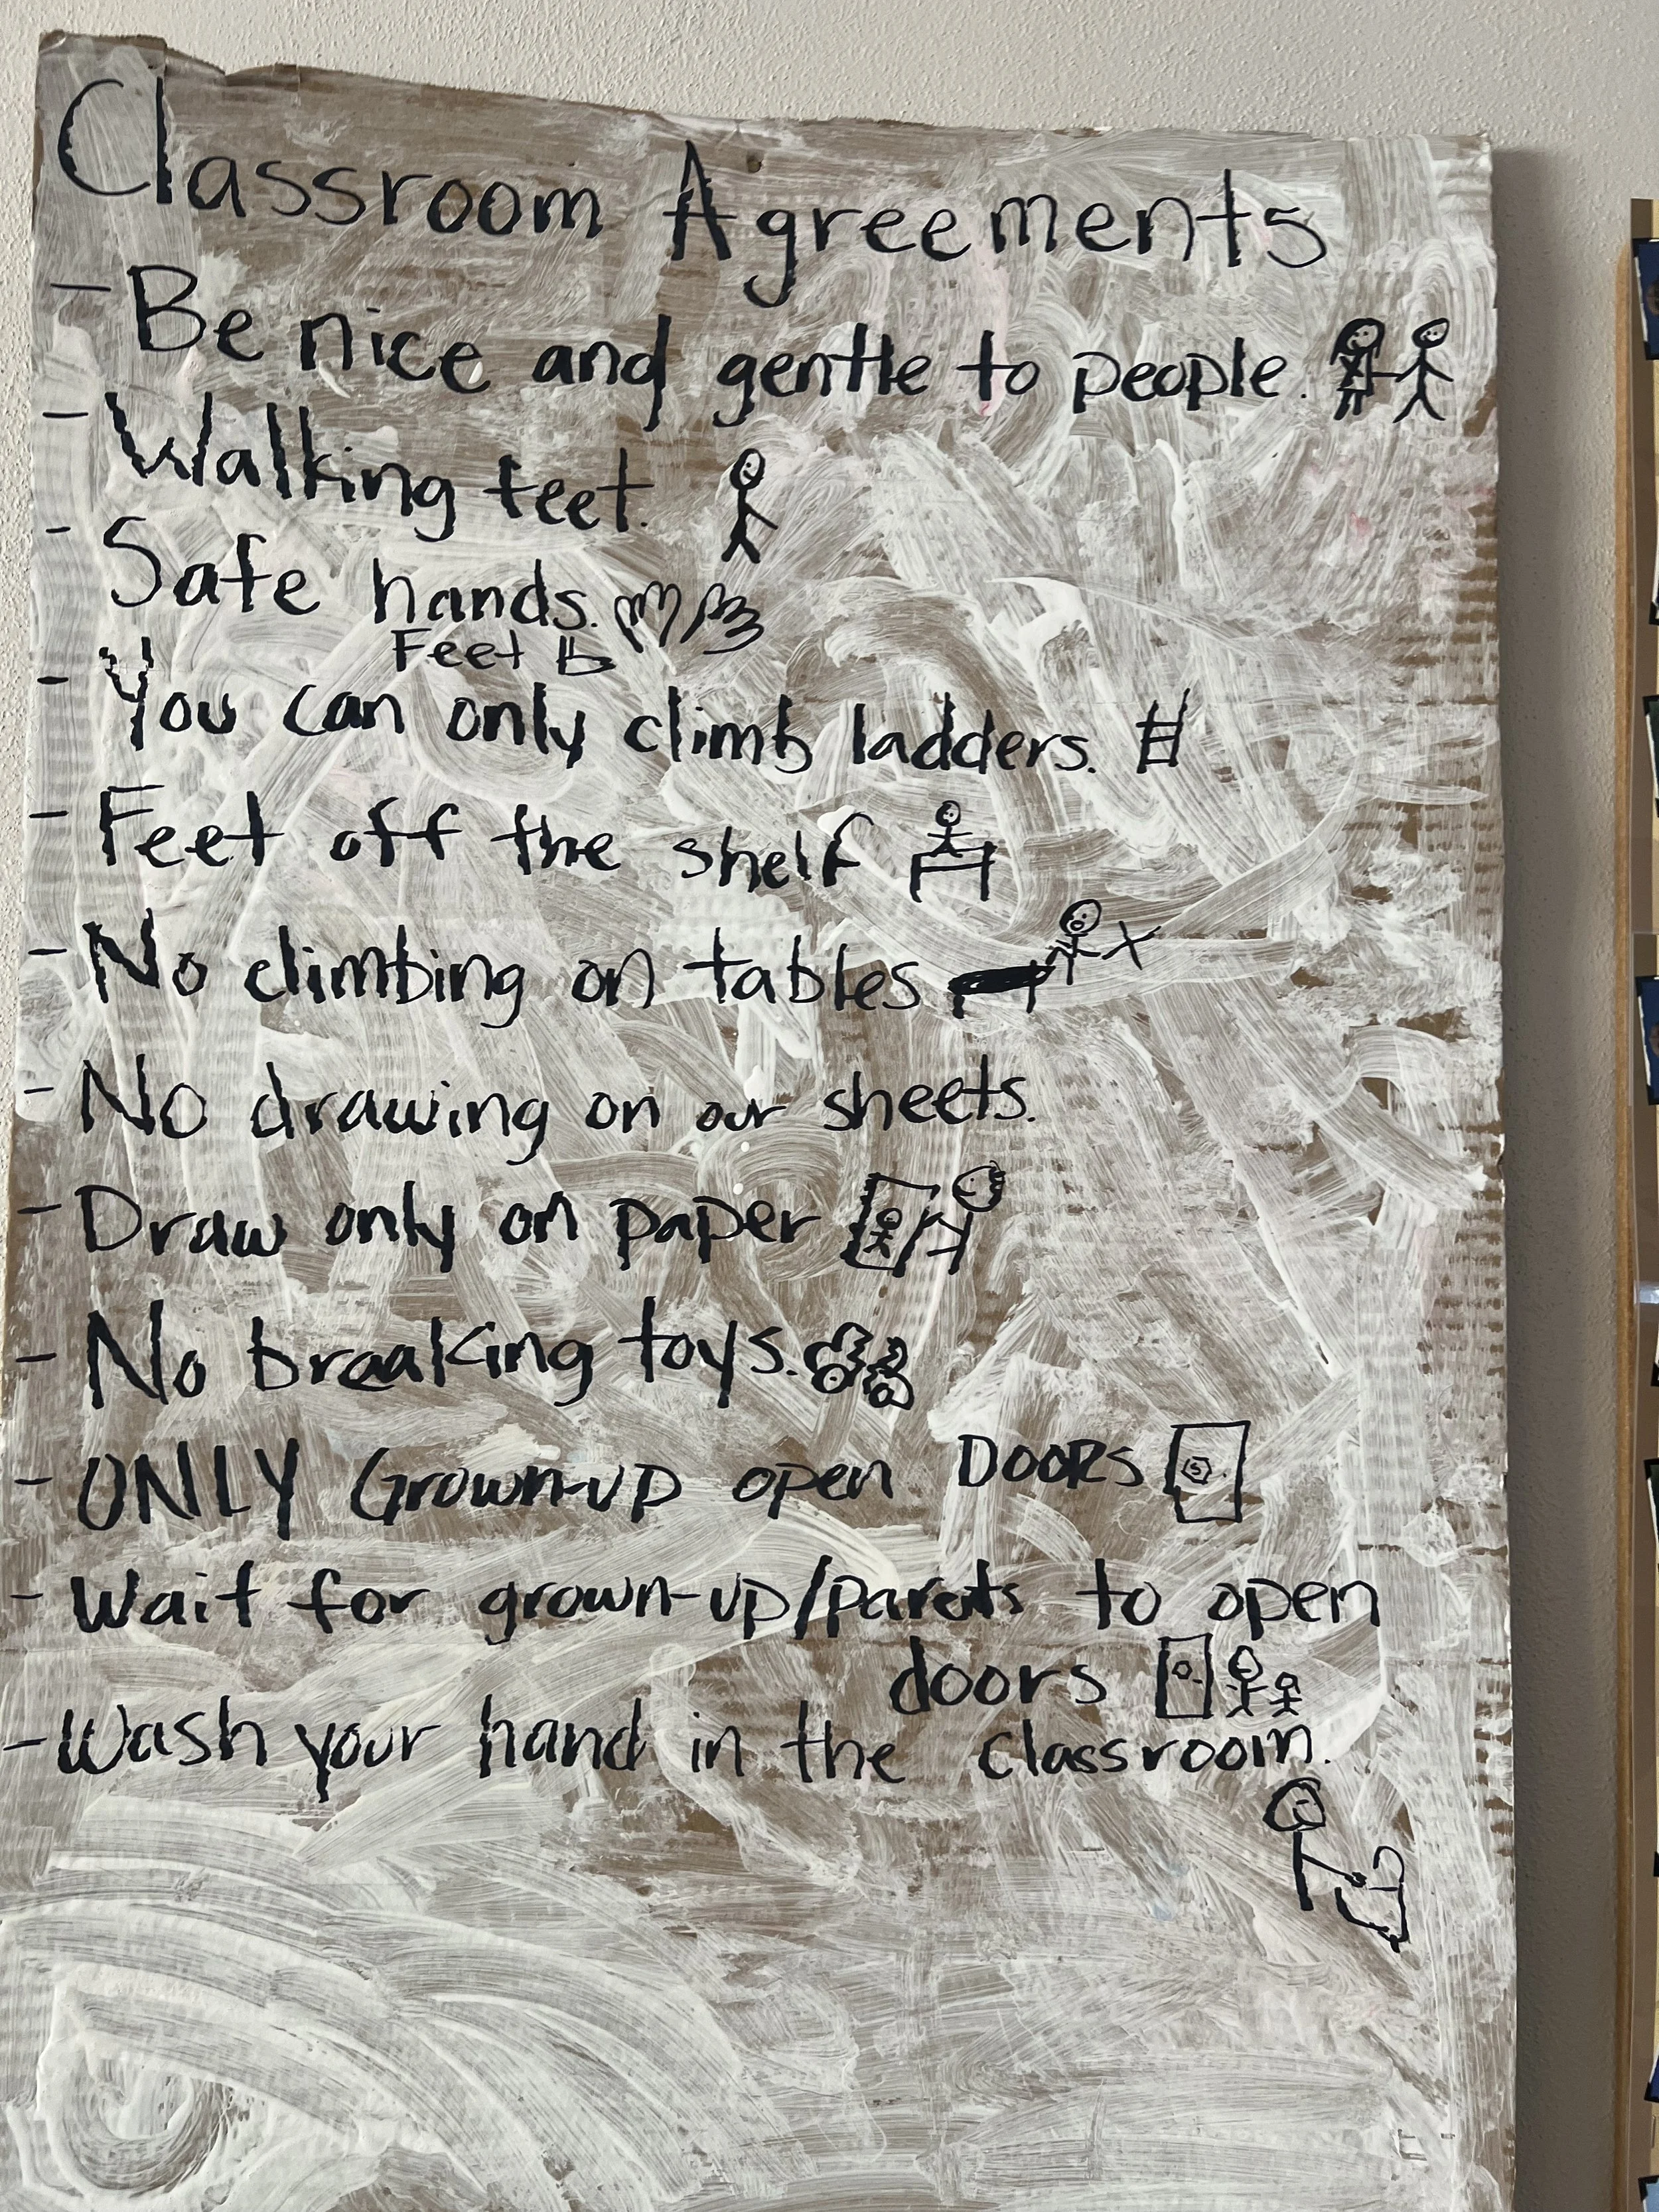 Classroom Agreements
- Be nice and gentle to people.
- Walking feet.
- Safe hands.
Feet
- You can only climb ladders.
- Feet off the shelf
- No climbing on tables
- No drawing on our sheets.
- Draw only on paper
- No breaking toys.
- ONLY Grown-up open DOORS
- Wait for grown-up/parents to open
doors
- Wash your hand in the classroom.